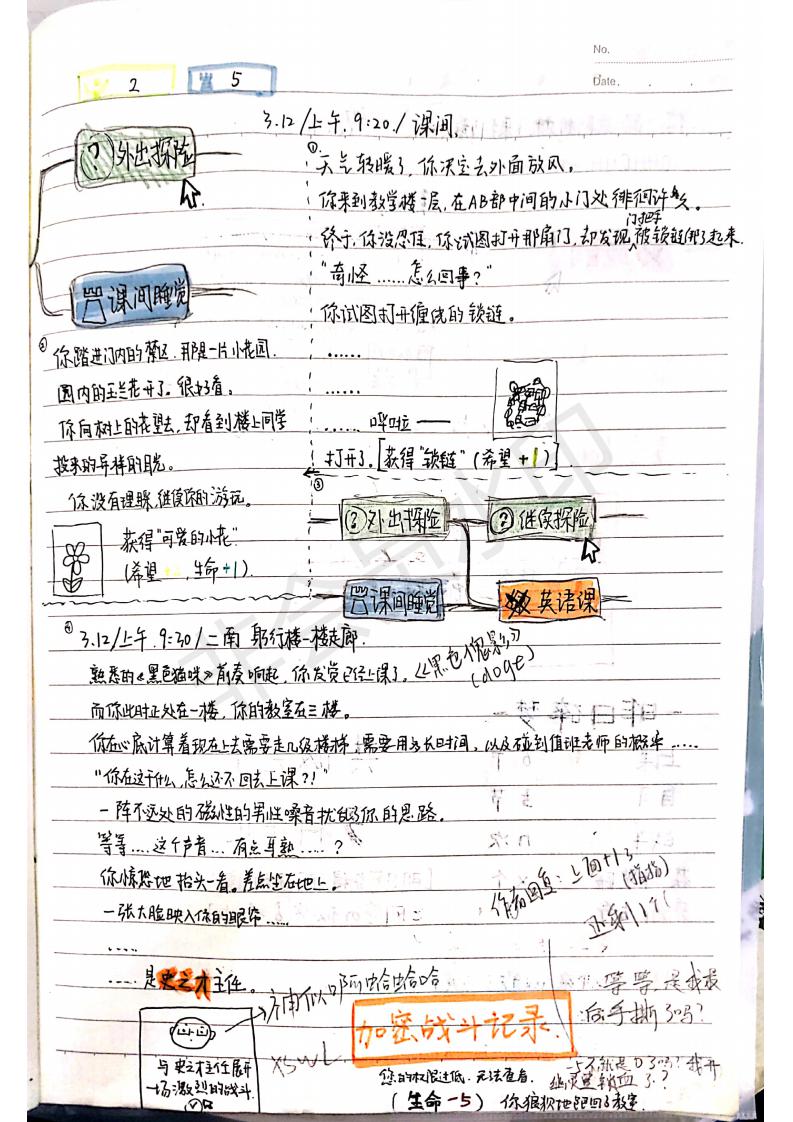 No.
Date.
2
5
3.12/上午.9:20/课间.
? 外出探险
课间睡觉
①
天气转暖了,你决定去外面放风。
你来到教学楼一层,在AB部中间的小门处徘徊许久。
终于,你没忍住,你试图打开那扇门,却发现门把手被锁链绑了起来.
“奇怪……怎么回事?”
你试图打开缠绕的锁链。
……
……
…… 哗啦——
打开了.[获得“锁链”(希望+1)]
②
你踏进门内的禁区.那是一片小花园.
园内的玉兰花开了。很好看。
你向树上的花望去,却看到楼上同学
投来的异样的目光。
你没有理睬,继续你的游玩。
获得“可爱的小花”
(希望+1,生命+1)
③
? 外出探险
? 继续探险
课间睡觉
英语课
④
3.12/上午.9:30/二南 躬行楼一楼走廊.
熟悉的《黑色猫咪》前奏响起,你发觉已经上课了。
《黑色傀影》
(doge)
而你此时正处在一楼,你的教室在三楼。
你在心底计算着现在上去需要走几级楼梯.需要用多长时间,以及碰到值班老师的概率……
“你在这干什么,怎么还不回去上课?!”
一阵不远处的磁性的男性嗓音扰乱了你的思路.
等等……这个声音…有点耳熟……?
你惊恐地抬头一看。差点坐在地上。
一张大脸映入你的眼帘……
……
……是史之才主任。
作者回复:上面+1了
(指指)
正剩1个
神似哪阿蛤蛤哈
等等是我最
后手撕了吗?
与史之才主任展开
一场激烈的战斗.
XSWL
加密战斗记录.
您的权限过低.无法查看.
(生命-5)
你狼狈地跑回了教室.
-5不就是0了吗?我开
继灵堂锁血了?